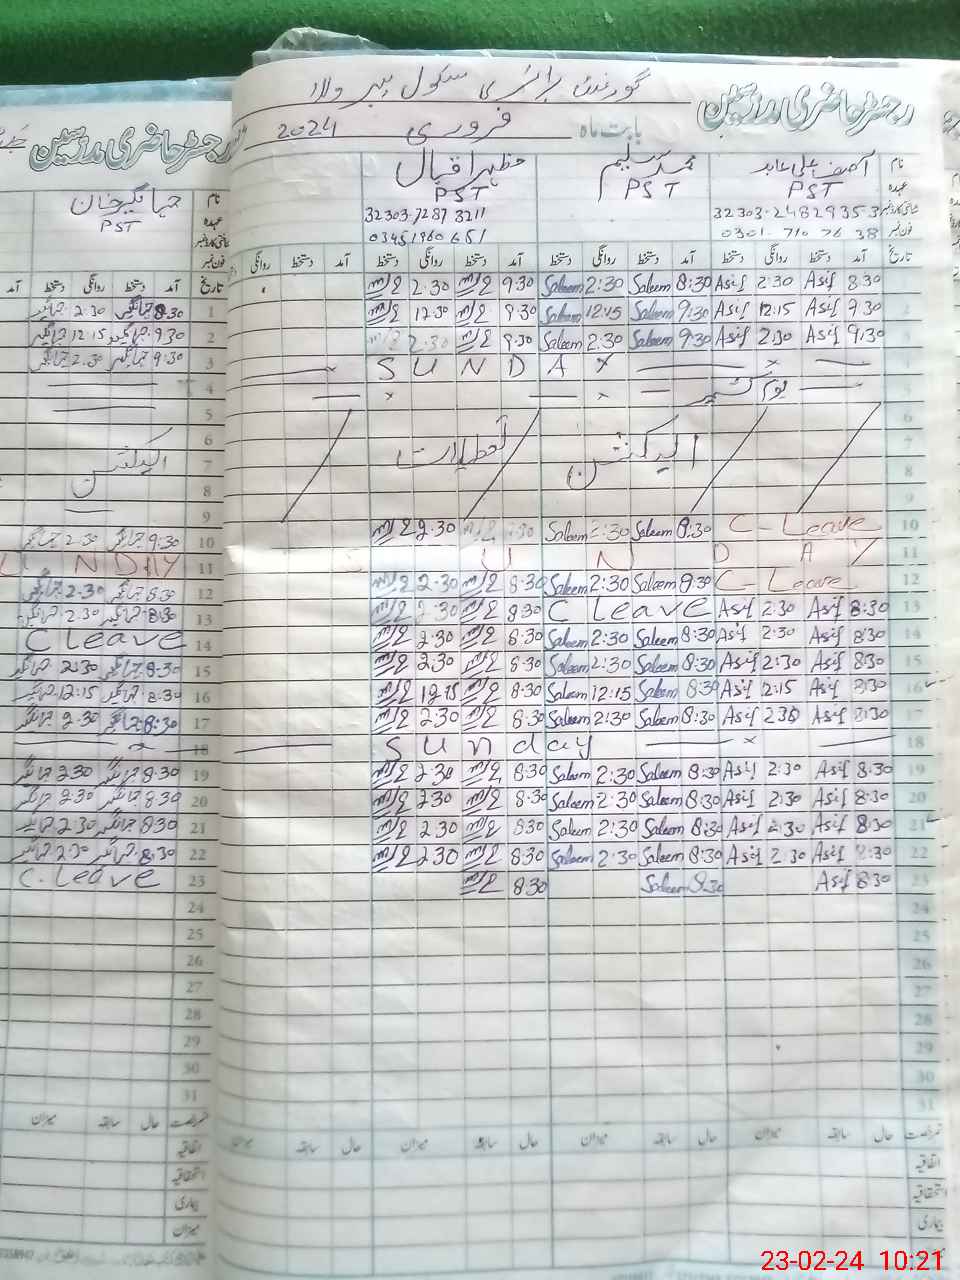 گورنمنٹ پرائمری سکول
رجسٹر حاضری مدرسین
بابت ماہ فروری 2024
رجسٹر حاضری مدرسین
نام آصف علی عابد محمد سلیم مظہر اقبال
عہدہ PST PST PST
32303-2482935-3 32303-7287 3211
0301-710 76 38 03451960651
تاریخ آمد دستخط روانگی دستخط آمد دستخط روانگی دستخط آمد دستخط روانگی دستخط آمد دستخط روانگی
m/8 2.30 m/8 9:30 Saleem 2:30 Saleem 8:30 Asif 2:30 Asif 8:30
m/8 12.30 m/8 9.30 Saleem 12:15 Saleem 9:30 Asif 12.15 Asif 9.30
m/8 2.30 m/8 9.30 Saleem 2:30 Saleem 9:30 Asif 2:30 Asif 9:30
S U N D A Y
یوم کشمیر
الیکشن تعطیلات
m/8 2.30 m/8 Saleem 2:30 Saleem 8:30 C - Leave 10
S U N D A Y 11
m/8 2.30 m/8 8:30 Saleem 2:30 Saleem 8:30 C - Leave 12
m/8 2:30 m/8 8:30 C Leave Asif 2:30 Asif 8:30 13
m/8 2:30 m/8 8:30 Saleem 2:30 Saleem 8:30 Asif 2:30 Asif 8:30 14
m/8 2:30 m/8 8:30 Saleem 2:30 Saleem 8:30 Asif 2:30 Asif 8:30 15
m/8 12.15 m/8 8:30 Saleem 12:15 Saleem 8:30 Asif 2:15 Asif 8:30 16
m/8 2:30 m/8 8:30 Saleem 2:30 Saleem 8:30 Asif 230 Asif 8:30 17
Sunday 18
m/8 230 m/8 8:30 Saleem 2:30 Saleem 8:30 Asif 2:30 Asif 8:30 19
m/8 230 m/8 8:30 Saleem 2:30 Saleem 8:30 Asif 2:30 Asif 8:30 20
m/8 230 m/8 830 Saleem 2:30 Saleem 8:30 Asif 2:30 Asif 8:30 21
m/8 230 m/8 8:30 Saleem 2:30 Saleem 8:30 Asif 2:30 Asif 8:30 22
m/8 8:30 Saleem 8:30 Asif 8:30 23
24
25
26
27
28
29
30
31
رخصت حال سابقہ میزان حال سابقہ میزان حال سابقہ میزان حال سابقہ میزان
اتفاقیہ
استحقاقیہ
بیماری
میزان
نام جہانگیر خان
عہدہ PST
فون نمبر
تاریخ آمد دستخط روانگی دستخط آمد
1 8:30 جہانگیر 2:30 جہانگیر
2 9:30 جہانگیر 12.15 جہانگیر
3 9:30 جہانگیر 2:30 جہانگیر
4
5
6
7 الیکشن
8
9
10 9:30 جہانگیر 2:30 جہانگیر
U N D A Y 11
12 8:30 جہانگیر 2.30 جہانگیر
13 8:30 جہانگیر 2:30 جہانگیر
C Leave 14
15 8:30 جہانگیر 2:30 جہانگیر
16 8:30 جہانگیر 12:15 جہانگیر
17 8:30 جہانگیر 2:30 جہانگیر
18
19 8:30 جہانگیر 230 جہانگیر
20 8:30 جہانگیر 2:30 جہانگیر
21 8:30 جہانگیر 2:30 جہانگیر
22 8:30 جہانگیر 2:30 جہانگیر
C. Leave 23
24
25
26
27
28
29
30
31
رخصت حال سابقہ میزان
اتفاقیہ
استحقاقیہ
بیماری
میزان
23-02-24 10:21